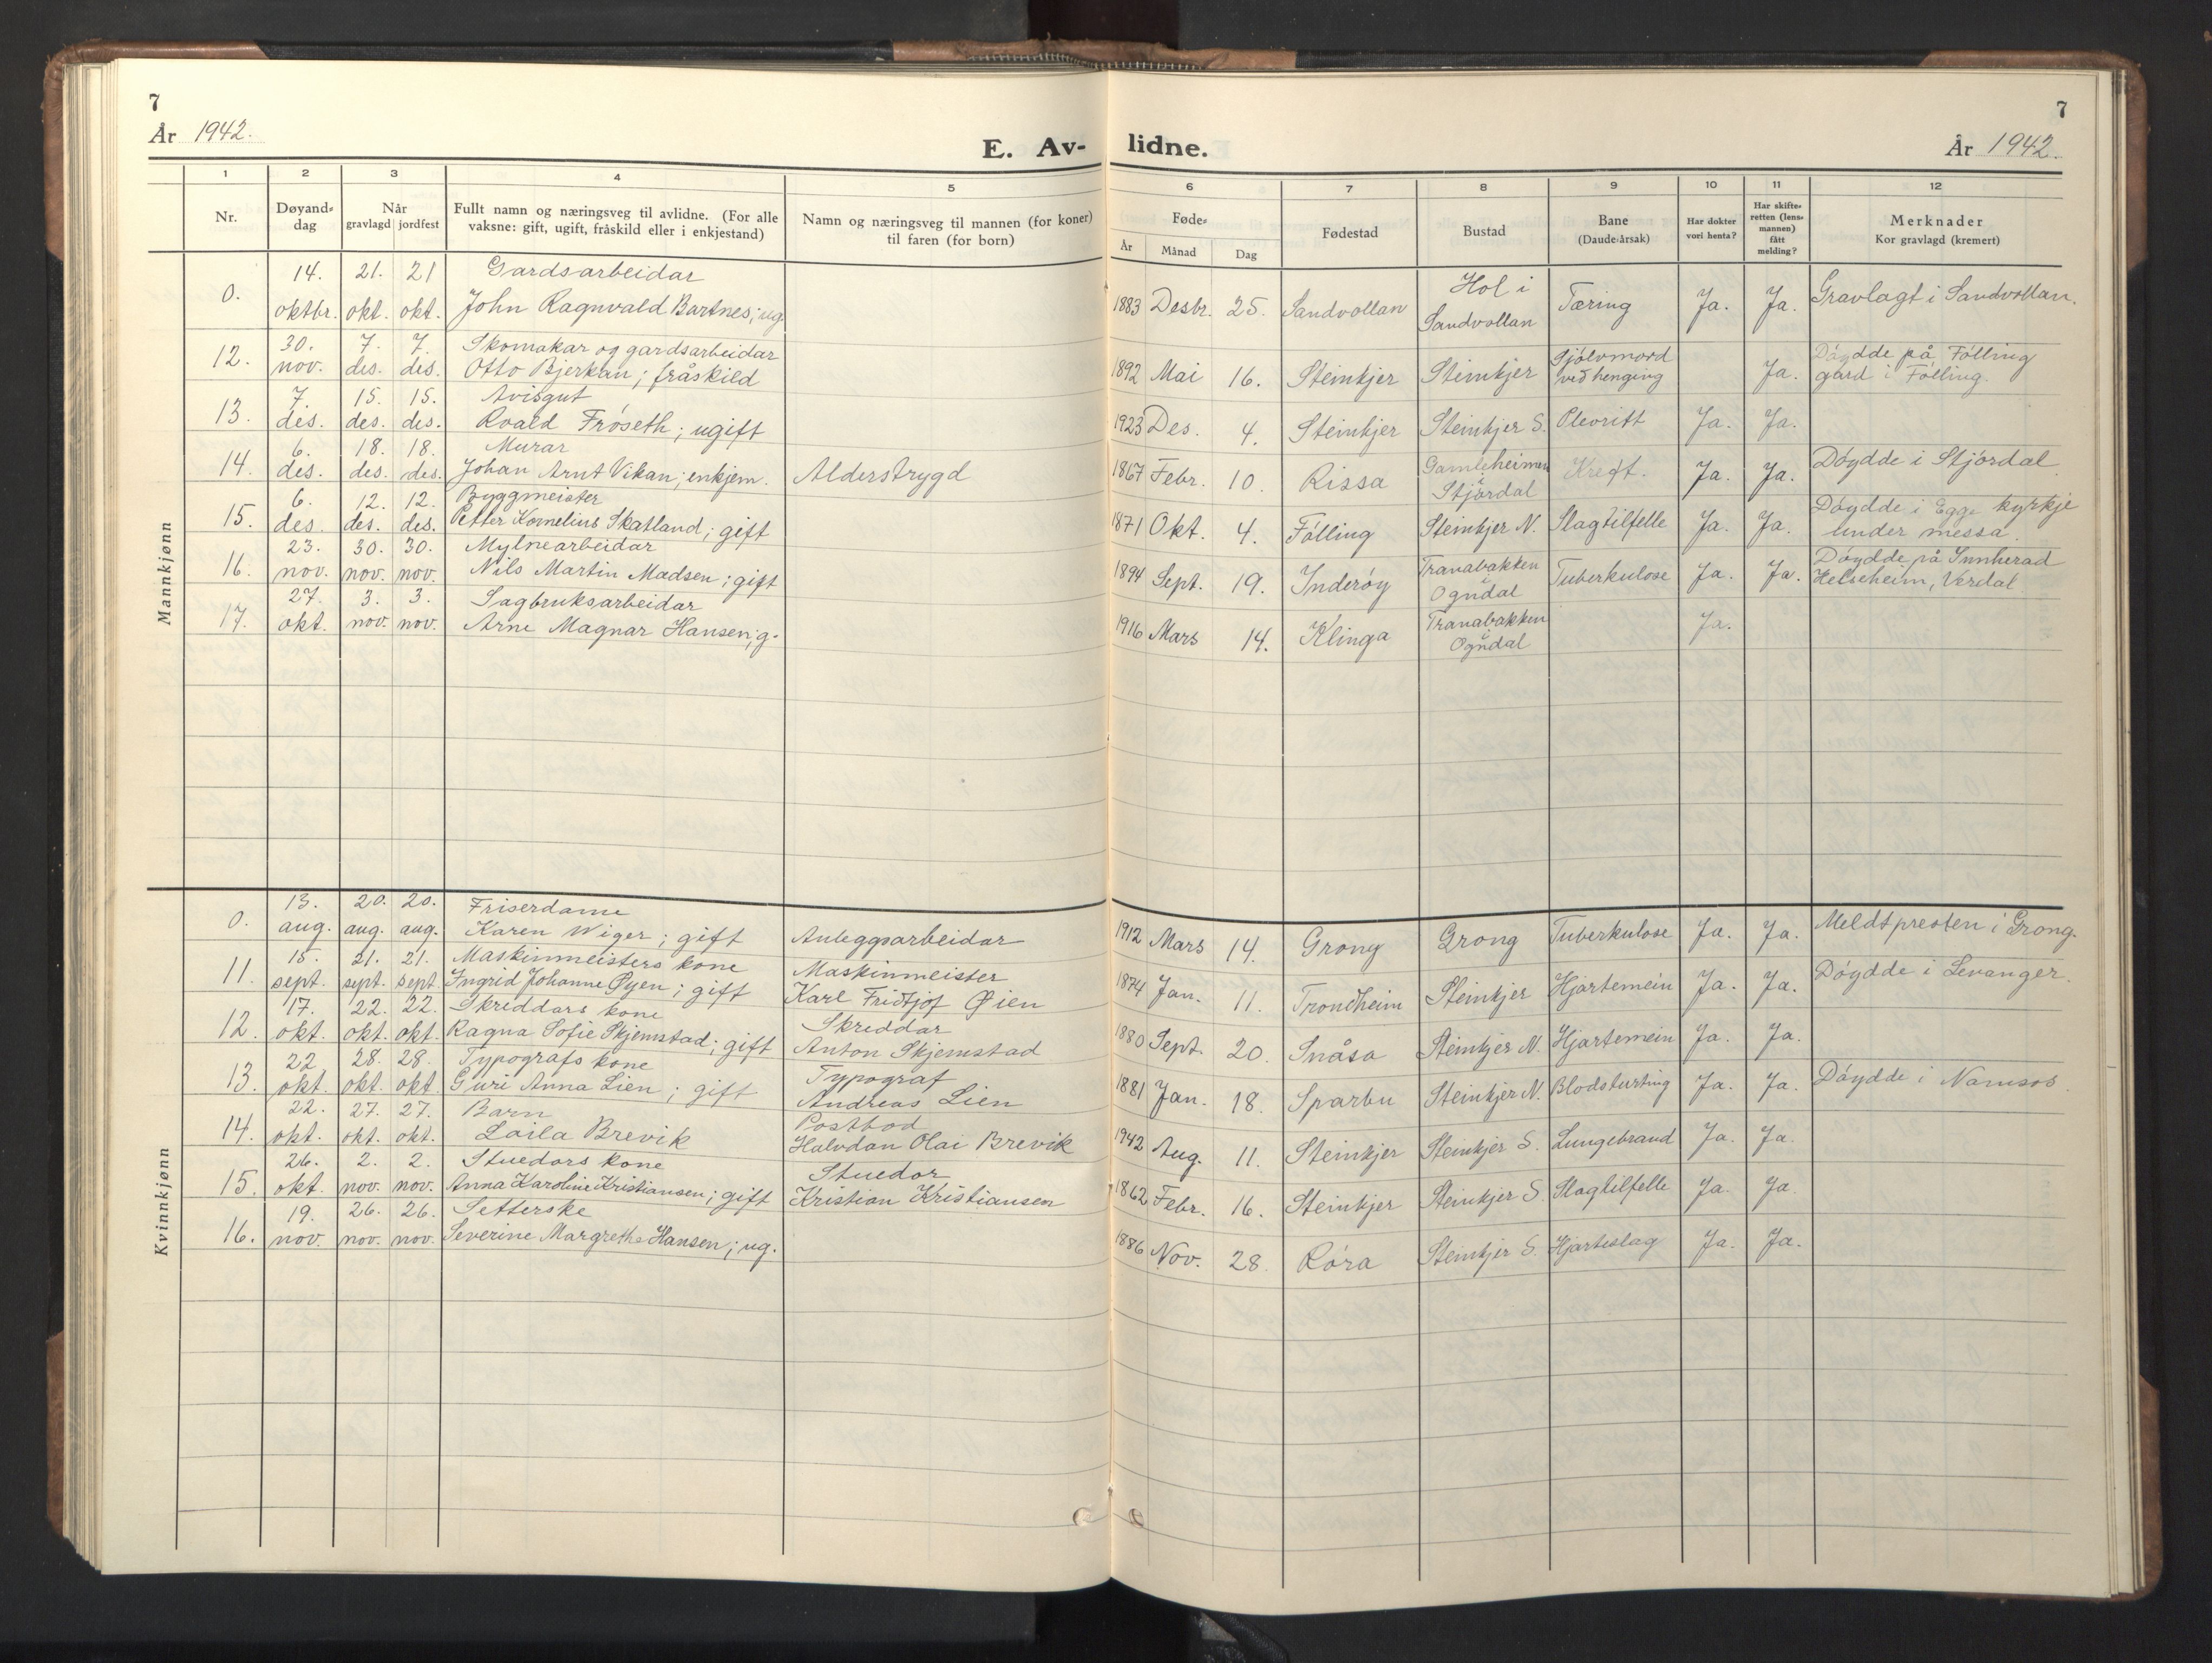 7
År 1942.
E. Av-
1 2 3 4 5
Nr.
Døyand-
dag
Når
gravlagd jordfest
Fullt namn og næringsveg til avlidne. (For alle
vaksne: gift, ugift, fråskild eller i enkjestand)
Namn og næringsveg til mannen (for koner)
til faren (for born)
Mannkjønn
14. 21. 21 Gardsarbeidar
0. oktbr. okt. okt. John Ragnvald Bartnes; ug.
30. 7. 7. Skomakar og gardsarbeidar
12. nov. des. des. Otto Bjerkan; fråskild
7. 15. 15. Avisgut
13. des. des. des. Roald Frøseth; ugift
6. 18. 18. Murar
14. des. des. des. Johan Arnt Vikan; enkjem. Alderstrygd
6. 12. 12. Byggmeister
15. des. des. des. Petter Kornelius Skatland; gift
23. 30. 30. Mylnearbeidar
16. nov. nov. nov. Nils Martin Madsen; gift
27. 3. 3. Sagbruksarbeidar
17. okt. nov. nov. Arne Magnar Hansen; g.
Kvinnkjønn
13. 20. 20. Friserdame
0. aug. aug. aug. Karen Wiger; gift Anleggsarbeidar
15. 21. 21. Maskinmeisters kone Maskinmeister
11. sept. sept. sept. Ingrid Johanne Øyen; gift Karl Fridtjof Øien
17. 22. 22. Skreddars kone Skreddar
12. okt. okt. okt. Ragna Sofie Skjemstad; gift Anton Skjemstad
22 28. 28. Typografs kone Typograf
13. okt. okt. okt. Guri Anna Lien; gift Andreas Lien
22. 27. 27. Barn Postbod
14. okt. okt. okt. Laila Brevik Halvdan Olai Brevik
26. 2. 2. Stuedors kone Stuedor
15. okt. nov. nov. Anna Karoline Kristiansen; gift Kristian Kristiansen
19. 26. 26. Setterske
16. nov. nov. nov. Severine Margrethe Hansen; ug.
7
lidne.
År 1942.
6 7 8 9 10 11 12
Føde-
År Månad Dag
Fødestad
Bustad
Bane
(Daude-årsak)
Har dokter
vori henta?
Har skifte-
retten (lens-
mannen)
fått
melding?
Merknader
Kor gravlagd (kremert)
Hol i
1883 Desbr. 25. Sandvollan Sandvollan Tæring Ja. Ja. Gravlagt i Sandvollan.
Sjølvmord Döydde på Følling
1892 Mai 16. Steinkjer Steinkjer ved henging Ja. gard i Følling.
1923 Des. 4. Steinkjer Steinkjer S. Plevritt Ja. Ja.
Gamleheimen
i
1867 Febr. 10. Rissa Stjørdal Kreft. Ja. Ja. Döydde i Stjørdal.
Döydde i Egge kyrkje
1871 Okt. 4. Følling Steinkjer N. Slagtilfelle Ja. Ja. under messa.
Tranabakken Döydde på Innherad
i
1894 Sept. 19. Inderøy Ogndal Tuberkulose Ja. Ja. Helseheim, Verdal
Tranabakken
i
1916 Mars 14. Klinga Ogndal Ja.
1912 Mars 14. Grong Grong Tuberkulose Ja. Ja. Meldt presten i Grong.
1874 Jan. 11. Trondheim Steinkjer Hjartemein Ja. Ja. Döydde i Levanger.
1880 Sept. 20. Snåsa Steinkjer N. Hjartemein Ja. Ja.
1881 Jan. 18. Sparbu Steinkjer N. Blodsturting Ja. Ja. Döydde i Namsos
1942 Aug. 11. Steinkjer Steinkjer S. Lungebrand Ja. Ja.
1862 Febr. 16. Steinkjer Steinkjer S. Slagtilfelle Ja. Ja.
1886 Nov. 28. Røra Steinkjer S. Hjarteslag Ja. Ja.